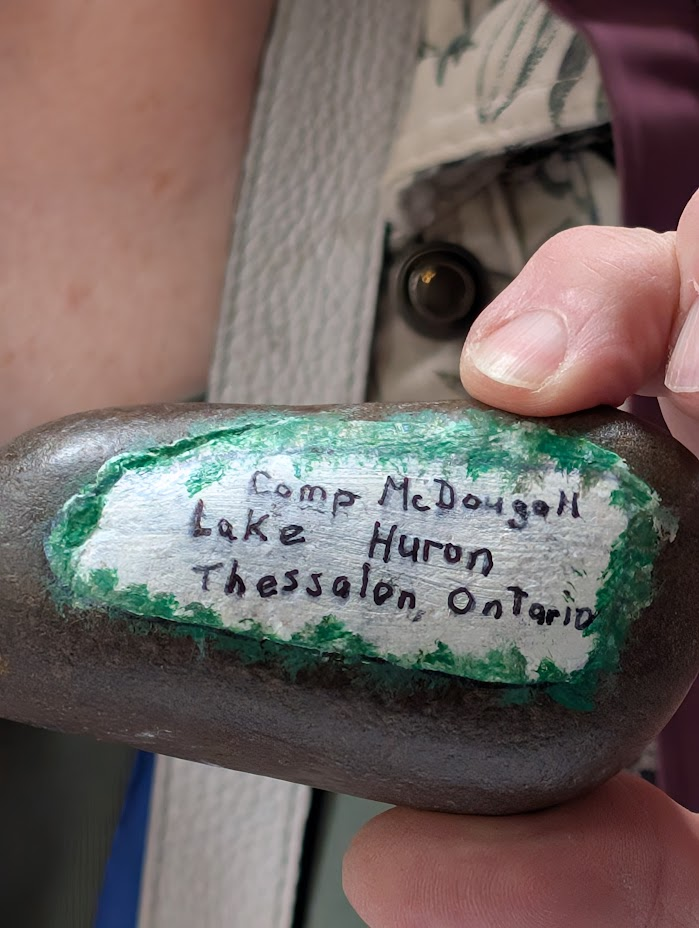 Camp McDougall
Lake Huron
Thessalon Ontario